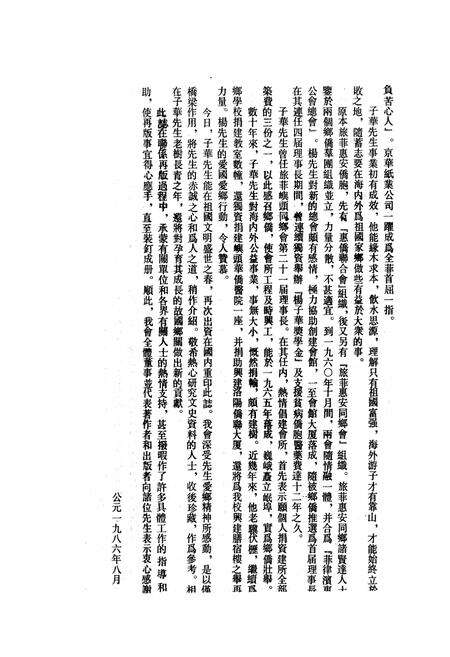 負苦心人」。京華紙業公司一躍成爲全菲首屈一指。
子華先生事業初有成效，他能緣木求本，飲水思源，理解只有祖國富强，海外游子才有靠山，才能始終立於
敗之地，隨蓄志要在海内外爲祖國家鄉做些有益於大衆的事。
原本旅菲惠安僑胞，先有「惠僑聯合會」組織；後又另有「旅菲惠安同鄉會」組織。旅菲惠安同鄉諸賢達人士
鑒於兩個鄉僑羣團組織並立，力量分散，不甚適宜。到一九六〇年十月間，兩會隨情融一體，并合爲「菲律濱惠
公會總會」。楊先生對新的總會頗有感情，極力協助創建會館，一至會館大厦落成，隨被鄉僑推選爲首屆理事長
在其連任四屆理事長期間，曾連續獨資舉辦「楊子華奬學金」及支援貧病僑胞醫藥費達十二年之久。
子華先生曾任旅菲嶼頭同鄉會第二十一屆理事長。在其任内，熱情倡建會所，首先表示願個人捐資建所全部
築費的三份之一，以此感召鄉僑，使會所工程及時興工，能於一九六五年落成，巍峨矗立岷埠，實爲鄉僑壯舉。
數十年來，子華先生對海内外公益事業，事無大小，慨然捐輸，頗有建樹。近幾年來，他老驥伏櫪，繼續爲
鄉學校捐建教室數幢，還獨資捐建嶼頭華僑醫院一座，并捐助興建洛陽僑聯大厦，還將爲我校興建膳宿樓之舉再
力量。楊先生的愛國愛鄉行動，令人贊慕。
今日，子華先生能在祖國文明盛世之春，再次出資在國内重印此誌。我會深受先生愛鄉精神所感動，是以僅
橋梁作用，將先生的赤誠之心和爲人之道，稍作介紹。敬希熱心研究文史資料的人士，收後珍藏，作爲參考。相
在子華先生老樹長青之年，還將對孕育其成長的故國鄉關做出新的貢獻。
此誌在聯係再版過程中，承蒙有關單位和各界有關人士的熱情支持，甚至撥暇作了許多具體工作的指導和
助，使再版事宜得心應手，直至裝釘成册。順此，我會全體董事並代表著作者和出版者向諸位先生表示衷心感謝
公元一九八六年八月